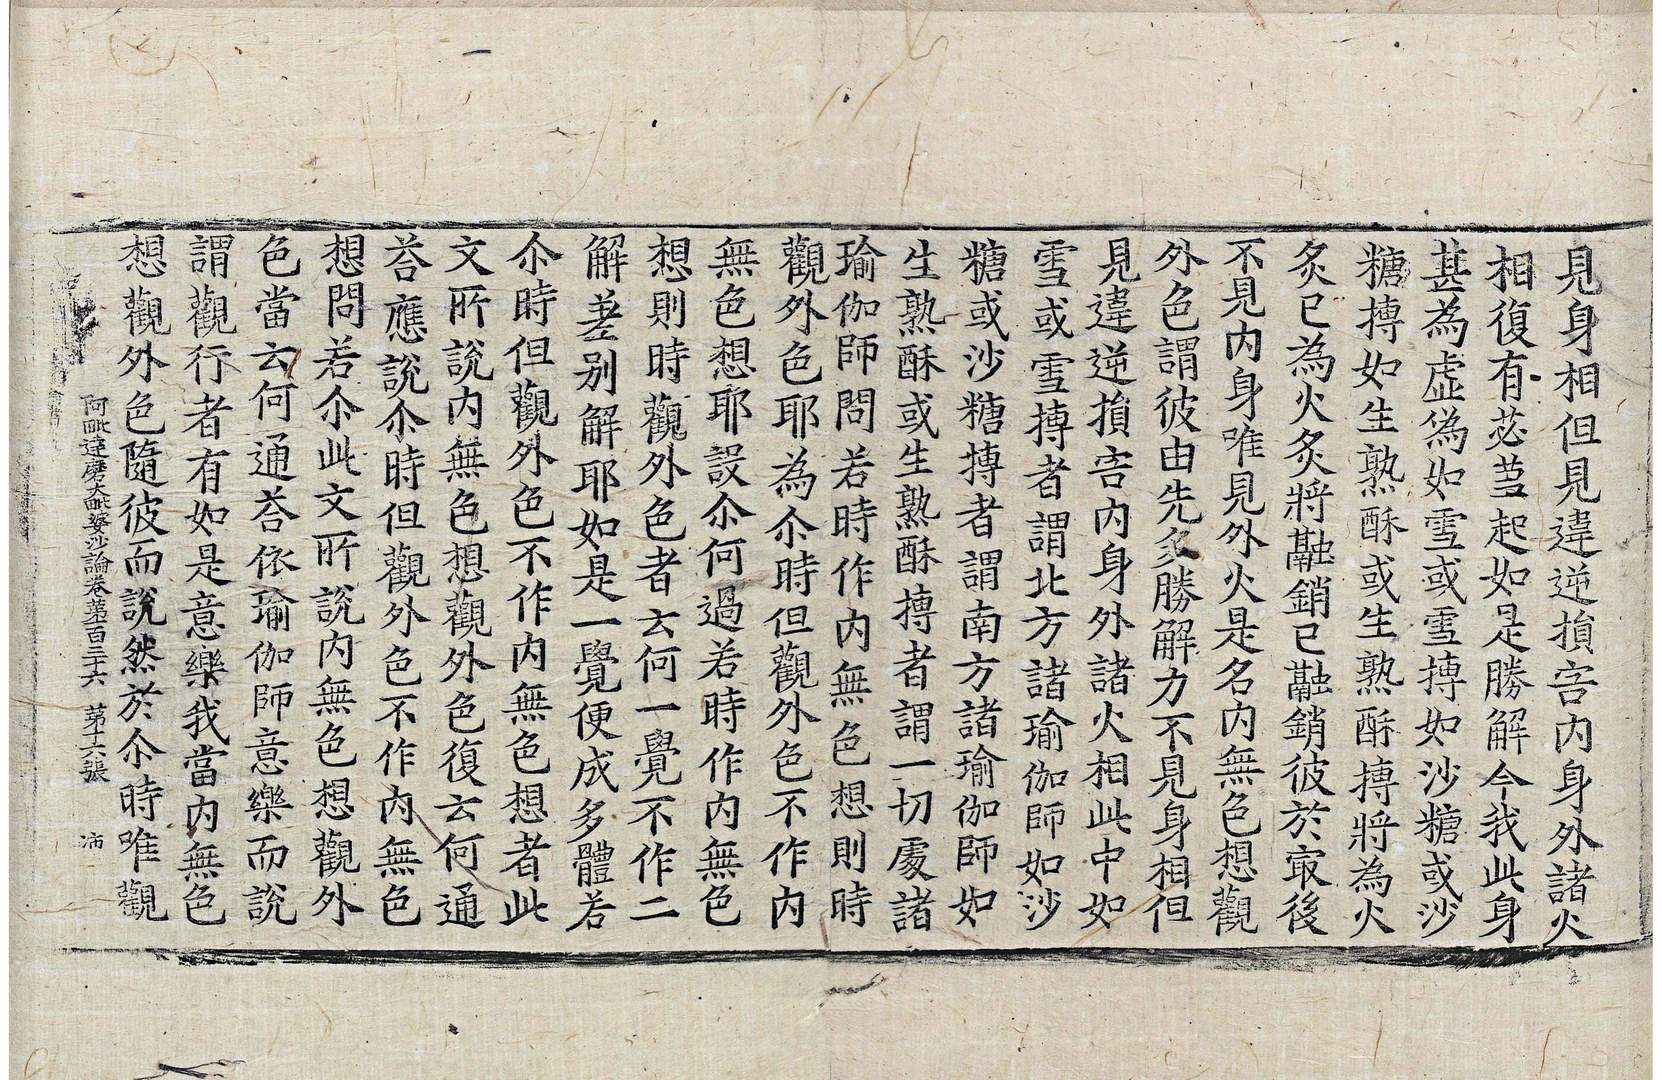 見身相但見違逆損害內身外諸火
相復有苾蒭起如是勝解今我此身
甚為虛偽如雪或雪摶如沙糖或沙
糖摶如生熟酥或生熟酥摶將為火
炙已為火炙將融銷已融銷彼於㝡後
不見內身唯見外火是名內無色想觀
外色謂彼由先多勝解力不見身相但
見違逆損害內身外諸火相此中如
雪或雪摶者謂北方諸瑜伽師如沙
糖或沙糖摶者謂南方諸瑜伽師如
生熟酥或生熟酥摶者謂一切處諸
瑜伽師問若時作內無色想則時
觀外色耶為尒時但觀外色不作內
無色想耶設尒何過若時作內無色
想則時觀外色者云何一覺不作二
解差別解耶如是一覺便成多體若
尒時但觀外色不作內無色想者此
文所說內無色想觀外色復云何通
荅應說尒時但觀外色不作內無色
想問若尒此文所說內無色想觀外
色當云何通荅依瑜伽師意樂而說
謂觀行者有如是意樂我當內無色
想觀外色隨彼而說然於尒時唯觀
阿毗達磨大毗婆沙論卷苐百三十六 苐十六張 沛